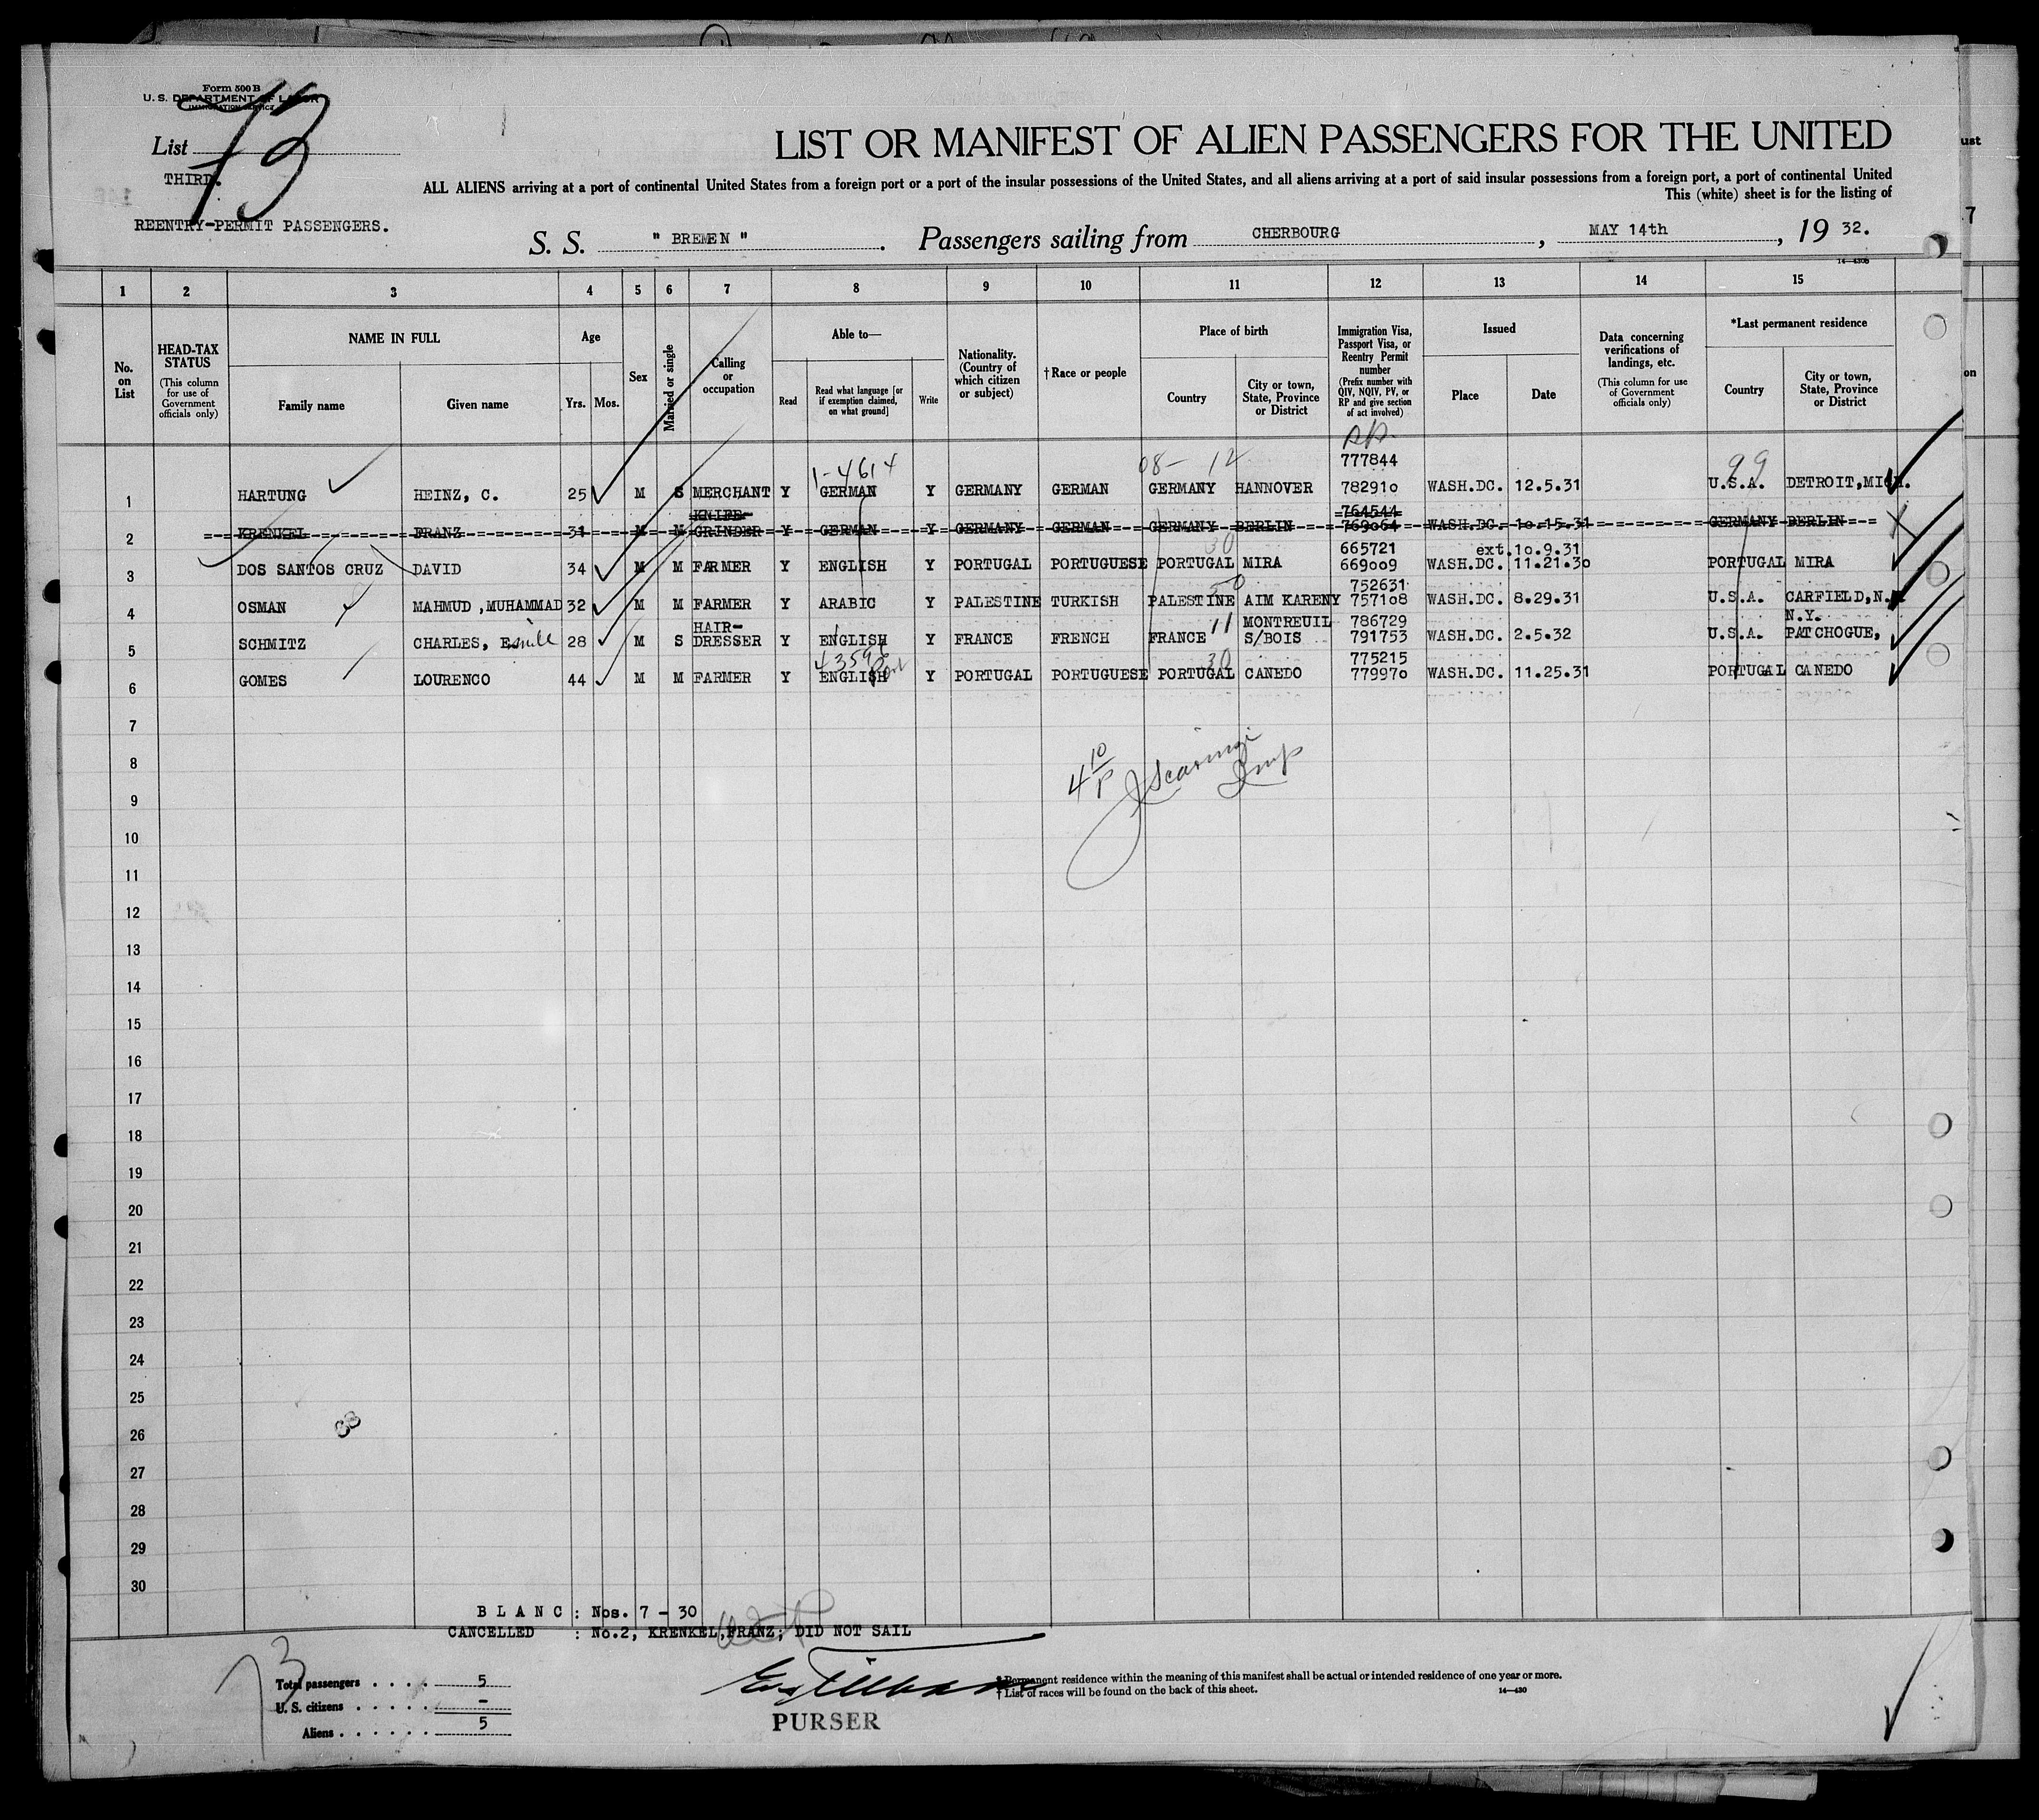 Form 500 B
U. S. DEPARTMENT OF LABOR
IMMIGRATION SERVICE
List 73
THIRD.
REENTRY-PERMIT PASSENGERS.
LIST OR MANIFEST OF ALIEN PASSENGERS FOR THE UNITED
ALL ALIENS arriving at a port of continental United States from a foreign port or a port of the insular possessions of the United States, and all aliens arriving at a port of said insular possessions from a foreign port, a port of continental United
This (white) sheet is for the listing of
S. S. " BREMEN ". Passengers sailing from CHERBOURG, MAY 14th, 19 32.
14—430B
1 2 3 4 5 6 7 8 9 10 11 12 13 14 15
No. on List
HEAD-TAX STATUS (This column for use of Government officials only)
NAME IN FULL
Family name Given name
Age
Yrs. Mos.
Sex
Married or single
Calling or occupation
Able to—
Read Read what language [or if exemption claimed, on what ground] Write
Nationality. (Country of which citizen or subject)
†Race or people
Place of birth
Country City or town, State, Province or District
Immigration Visa, Passport Visa, or Reentry Permit number (Prefix number with QIV, NQIV, PV, or RP and give section of act involved)
Issued
Place Date
Data concerning verifications of landings, etc. (This column for use of Government officials only)
*Last permanent residence
Country City or town, State, Province or District
1-4614 08- 12 777844 99
1 HARTUNG HEINZ, C. 25 M S MERCHANT Y GERMAN Y GERMANY GERMAN GERMANY HANNOVER 782910 WASH.DC. 12.5.31 U.S.A. DETROIT,MICH.
KNIFE- 764544
2 KRENKEL FRANZ 31 M M GRINDER Y GERMAN Y GERMANY GERMAN GERMANY BERLIN 769064 WASH.DC. 10.15.31 GERMANY BERLIN
30 665721 ext.10.9.31
3 DOS SANTOS CRUZ DAVID 34 M M FARMER Y ENGLISH Y PORTUGAL PORTUGUESE PORTUGAL MIRA 669009 WASH.DC. 11.21.30 PORTUGAL MIRA
50 752631
4 OSMAN MAHMUD,MUHAMMAD 32 M M FARMER Y ARABIC Y PALESTINE TURKISH PALESTINE AIM KARENY 757108 WASH.DC. 8.29.31 U.S.A. CARFIELD,N.
HAIR- 11 MONTREUIL 786729 N.Y.
5 SCHMITZ CHARLES, Emile 28 M S DRESSER Y ENGLISH Y FRANCE FRENCH FRANCE S/BOIS 791753 WASH.DC. 2.5.32 U.S.A. PATCHOGUE,
43596 Port 30 775215
6 GOMES LOURENCO 44 M M FARMER Y ENGLISH Y PORTUGAL PORTUGUESE PORTUGAL CANEDO 779970 WASH.DC. 11.25.31 PORTUGAL CANEDO
7
8
4 10/P Insp
9
10
11
12
13
14
15
16
17
18
19
20
21
22
23
24
25
26
27
28
29
30
B L A N C : Nos. 7 - 30
CANCELLED : No.2, KRENKEL,FRANZ; DID NOT SAIL
73
Total passengers . . . . 5
U. S. citizens . . . . . –
Aliens . . . . . . 5
PURSER
* Permanent residence within the meaning of this manifest shall be actual or intended residence of one year or more.
† List of races will be found on the back of this sheet.
14—430